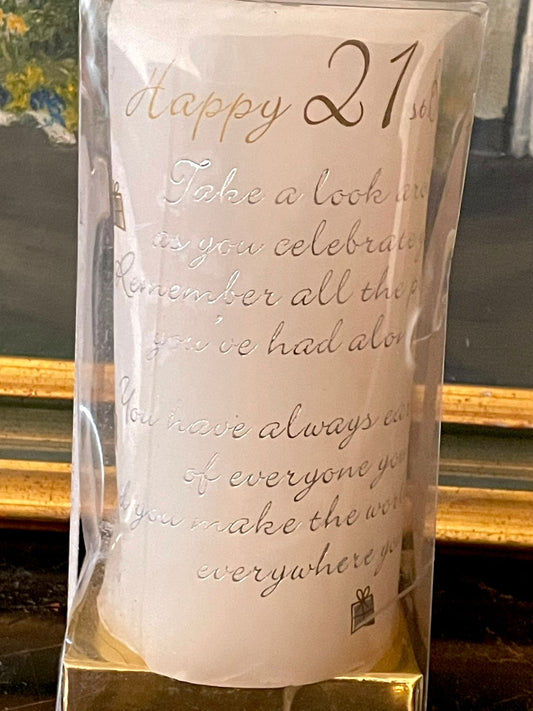 Happy 21st
Take a look
as you celebrate
Remember all the
you've had
You have always
of everyone you
you make the
everywhere